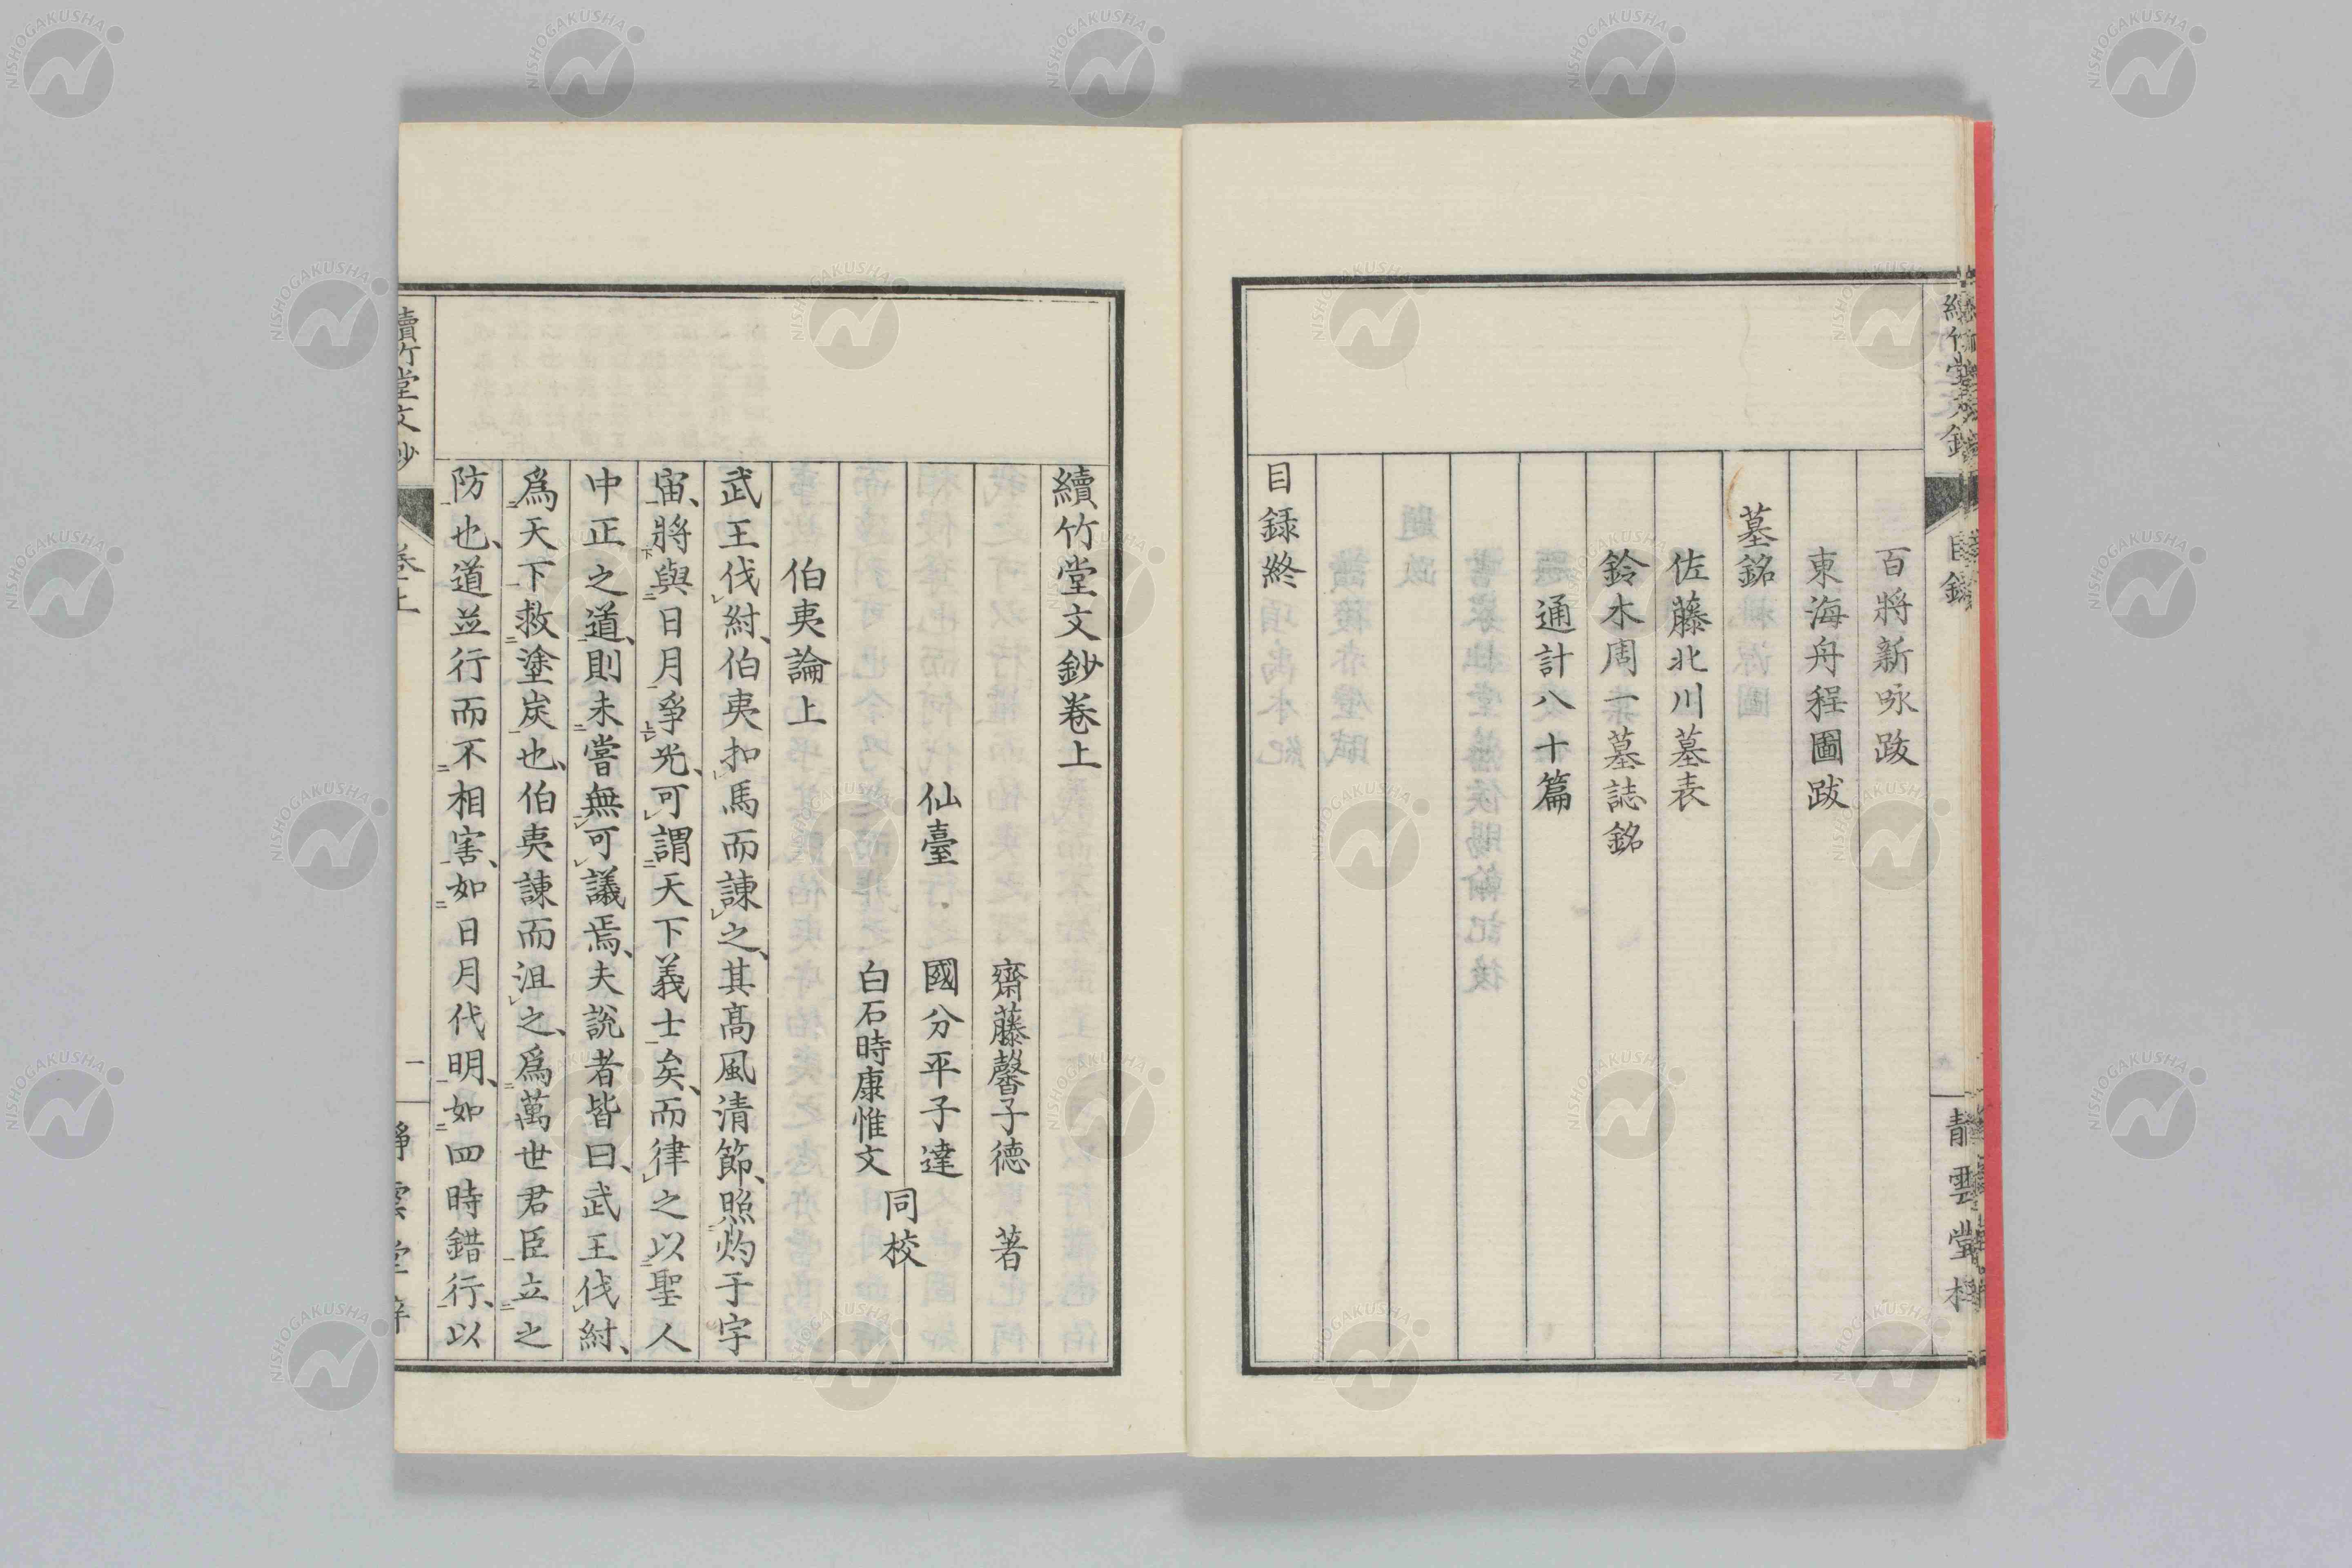 百將新咏跋
東海舟程圖跋
墓銘
佐藤北川墓表
鈴木周一墓誌銘
通計八十篇
目録終
續竹堂文鈔卷上
齋藤馨子德 著
仙臺 國分平子達
白石時康惟文
同校
伯夷論上
武王伐紂、伯夷扣馬而諫之、其高風清節、照灼于宇
宙、將與日月爭光、可謂天下義士矣、而律之以聖人
中正之道、則未嘗無可議焉、夫說者皆曰、武王伐紂、
爲天下救塗炭也、伯夷諫而沮之、爲萬世君臣立之
防也、道並行而不相害、如日月代明、如四時錯行、以
續竹堂文鈔
卷上
一
靜雲堂梓
NISHOGAKUSHA